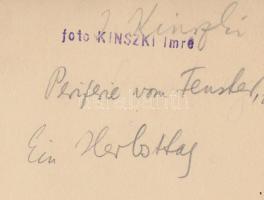 I Kinszki
foto KINSZKI Imre
Periferie vom Fenster,
Ein Herbsttag